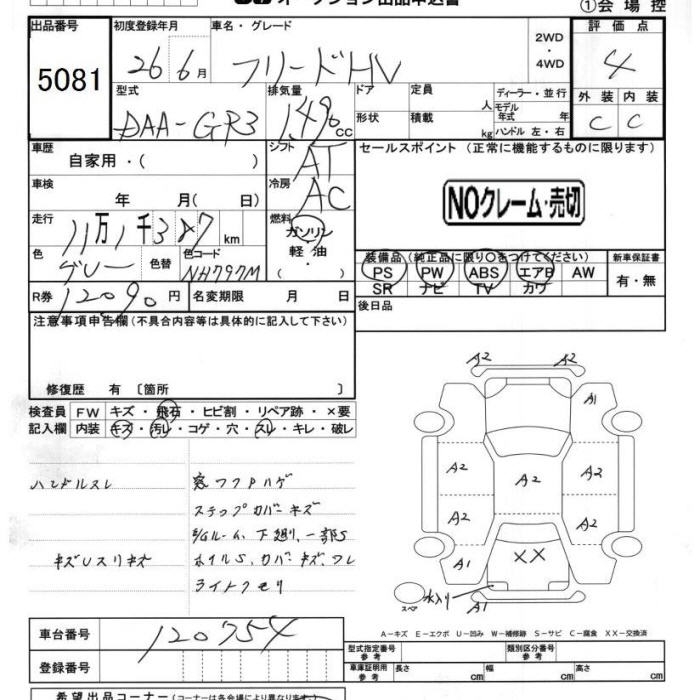 オークション出品申込書
①会場控
出品番号 初度登録年月 車名・グレード 2WD・4WD 評価点
5081 26年6月 フリードHV 4
型式 排気量 ドア 定員 人 ディーラー・並行 外装 内装
DAA-GP3 1496 CC 形状 積載 kg モデル年式 年 ハンドル 左・右 C C
車歴 自家用・( ) シフト AT セールスポイント (正常に機能するものに限ります)
車検 年 月( 日) 冷房 AC
NOクレーム・売切
走行 11万1千387km 燃料 ガソリン 軽油
色 グレー 色替 色コード NH797M
装備品 (純正品に限り○をつけてください) 新車保証書
PS PW ABS エアB AW 有・無
SR ナビ TV カワ
R券 12090円 名変期限 月 日 後日品
注意事項申告欄(不具合内容等は具体的に記入して下さい)
修復歴 有 〔箇所 〕
検査員 FW キズ・飛石・ヒビ割・リペア跡・×要
記入欄 内装 キズ・汚レ・コゲ・穴・スレ・キレ・破レ
ハンドルスレ
キズUスリキズ
窓フクPハゲ
ステップカバーキズ
E/Gルーム、下廻り、一部S
ホイルS、カバーキズ、ワレ
ライトクモリ
A2 A2
A2 A1
A2 A2 A2
A2 A2
A1 XX A1
スペア 水入り A1
A-キズ E-エクボ U-凹み W-補修跡 S-サビ C-腐食 XX-交換済
車台番号 120754
登録番号
型式指定番号 参考 類別区分番号 参考
車庫証明用 参考 長さ cm 幅 cm 高さ cm
希望出品コーナー